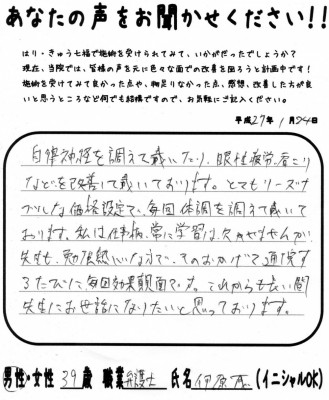 あなたの声をお聞かせください!!
はり・きゅう七福で施術を受けられてみて、いかがだったでしょうか?
現在、当院では、皆様の声を元に色々な面での改善を図ろうと計画中です!
施術を受けてみて良かった点や、物足りなかった点、感想、改善した方が良
いと思うところなど何でも結構ですので、お気軽にご記入ください。
平成27年 1月24日
自律神経を調えて戴いたり、眼性疲労、肩こり
などを改善して戴いております。とてもリーズナ
ブルな価格設定で、毎回体調を調えて戴いて
おります。私は仕事柄、常に学習は欠かせませんが
先生も、勉強熱心な方で、そのおかげで通院す
るたびに毎回効果覿面です。これからも長い間
先生にお世話になりたいと思っております。
男性・女性 39歳 職業 弁護士 氏名 伊原 (イニシャルOK)